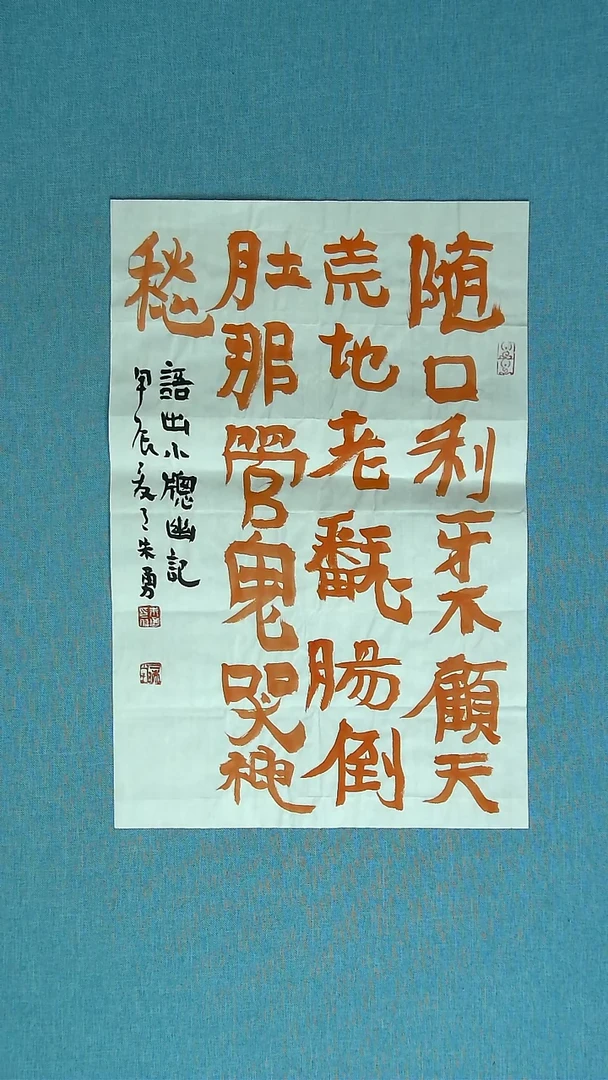 随口利牙不顧天
荒地老翻腸倒
肚那管鬼哭神
愁
語出小牕幽記
甲辰夏了朱勇